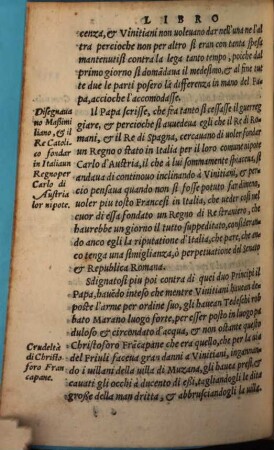 LIBRO
cenza,& Vinitiani non uoleuano dar nell'una ne l'al
tra percioche non per altro si eran con tanta spesa
mantenuti contra la lega tanto tempo, poiche dal
primo giorno si domādaua il medesimo,& al fin tut
te due le parti posero la differenza in mano del Pa
pa, accioche l'accomodasse.
Disegnaua
no Massimi
liano, & il
Re Catoli
co fondar
in Italia un
Regno per
Carlo di
Austria
lor nipote.
Il Papa scrisse, che fra tanto si cessasse il guerreg
giare, & percioche si auuedeua egli che il Re di Ro-
mani, & il Re di Spagna, cercauano di uoler fondar
un Regno o stato in Italia per il loro comune nipote
Carlo d'Austria, il che a lui sommamente spiaceua, si
andaua di continouo inclinando à Vinitiani, & per
cio pensaua quando non si fosse potuto far dimeno,
uoler piu tosto Francesi in Italia, che ueder così nel
cuor di essa fondato un Regno di Re straniero, che
l'haurebbe un giorno il tutto suppeditato, consideran
do anco egli la riputatione d'Italia, che pare, che an
co tenga una simiglianza, ò perpetuatione del Senato
& Republica Romana.
Sdegnatosi piu poi contra di quei duo Principi il
Papa, hauēdo inteso che mentre Vinitiani hauean de
poste l'arme per ordine suo, gli hauean Tedeschi rob
bato Marano luogo forte, per esser posto in luogo pa
duloso & circondato d'acqua, & non ostante questo
Crudeltà
di Christo
foro Fran
capane.
Christoforo Frācapane che era quello, che per la uia
del Friuli faceua gran danni a Vinitiani, ingannan-
do i uillani della uilla di Muzana, gli hauea presi,&
cauati gli occhi à ducento di essi, tagliandogli le dita
grosse della man dritta, & abbrusciandogli la uilla.